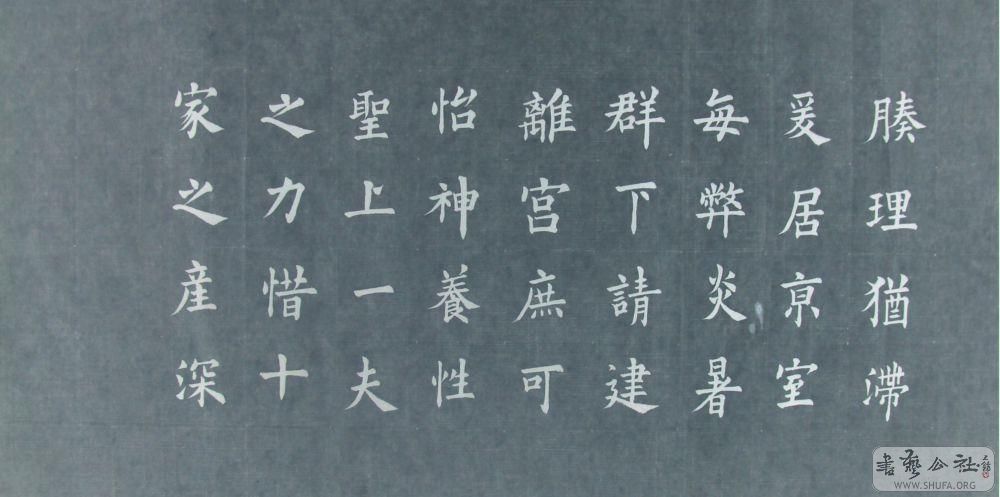 腠理猶滯
爰居京室
每弊炎暑
群下請建
離宮庶可
怡神養性
聖上一夫
之力惜十
家之産深
書藝公社
WWW.SHUFA.ORG